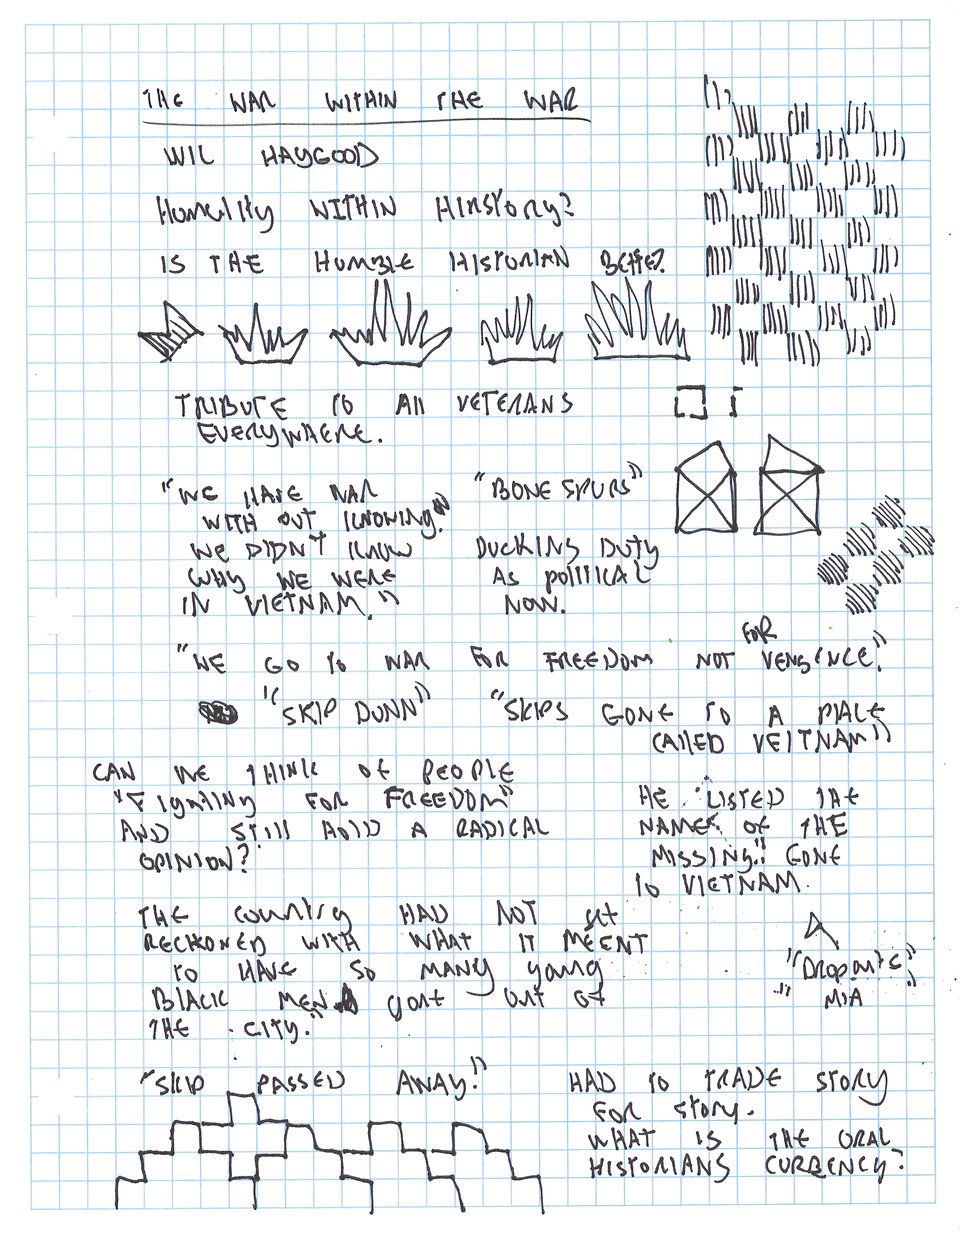 THE WAR WITHIN THE WAR
WIL HAYGOOD
Humility WITHIN HINSTORY?
IS THE HUMBLE HISTORIAN BETTER?
TRIBUTE TO All VETERANS
EVERYWHERE.
"WE HAVE WAR
WITH OUT KNOWING."
WE DIDN'T KNOW
WHY WE WERE
IN VIETNAM."
"BONE SPURS"
DUCKING DUTY
AS POLITICAL
NOW.
FOR
"WE GO TO WAR FOR FREEDOM NOT VENGENCE."
"SKIP DUNN"
"SKIPS GONE TO A PLACE
CALLED VEITNAM"
CAN WE THINK OF PEOPLE
"FIGHTING FOR FREEDOM"
AND STILL HOLD A RADICAL
OPINION?
HE LISTED THE
NAMES OF THE
MISSING." GONE
TO VIETNAM.
THE COUNTRY HAD NOT yet
RECKONED WITH WHAT IT MEENT
TO HAVE SO MANY young
BLACK MEN gone out of
THE CITY."
"Dropouts"
"MIA
"SKIP PASSED AWAY."
HAD TO TRADE STORY
FOR STORY.
WHAT IS THE ORAL
HISTORIANS CURRENCY?